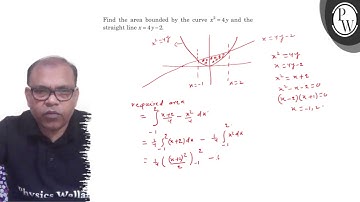 Find the area bounded by the curve x² = 4y and the
straight line x = 4y – 2.
x²=4y
x=4y-2
x=-1
x=2
x²=4y
x=4y-2
x²=x+2
x²-x-2=0
(x-2)(x+1)=0
x=-1,2
required area
= ∫₋₁² x+2/4 - x²/4 dx
= 1/4 ∫₋₁² (x+2)dx - 1/4 ∫₋₁² x²dx
= 1/4 ((x+2)²/2)₋₁² -
Physics Wallah